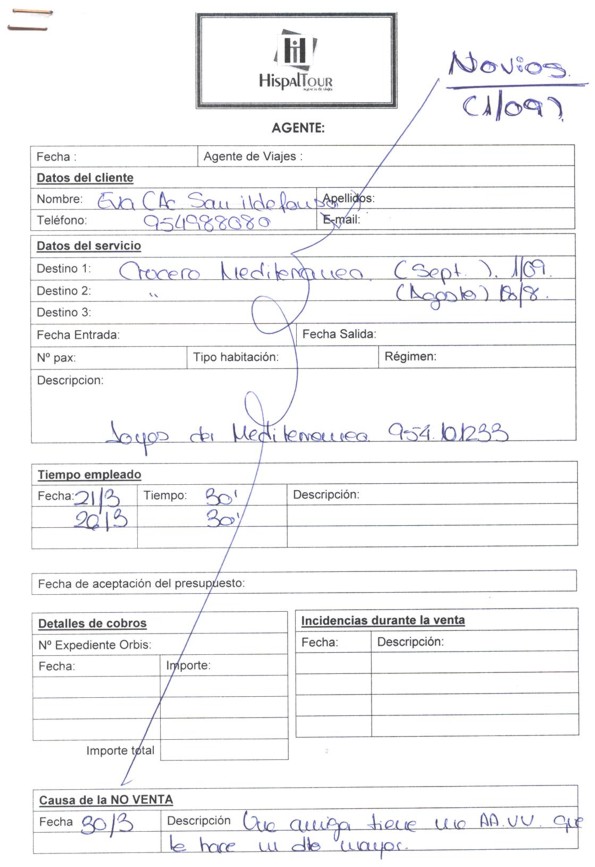 HISPALTOUR
agencia de viajes
Novios.
(1/09)
AGENTE:
Fecha : Agente de Viajes :
Datos del cliente
Nombre: Eva CAc San ildefonso Apellidos:
Teléfono: 954988080 E-mail:
Datos del servicio
Destino 1: Crucero Mediterraneo. (Sept.). 1/09.
Destino 2: " (Agosto) 18/8.
Destino 3:
Fecha Entrada: Fecha Salida:
Nº pax: Tipo habitación: Régimen:
Descripcion:
Joyas del Mediterraneo 954.101233
Tiempo empleado
Fecha: 21/3 Tiempo: 30' Descripción:
26/3 30'
Fecha de aceptación del presupuesto:
Detalles de cobros
Nº Expediente Orbis:
Fecha: Importe:
Importe total
Incidencias durante la venta
Fecha: Descripción:
Causa de la NO VENTA
Fecha 30/3 Descripción Una amiga tiene una AA.VV. que
le hace un dto mayor.